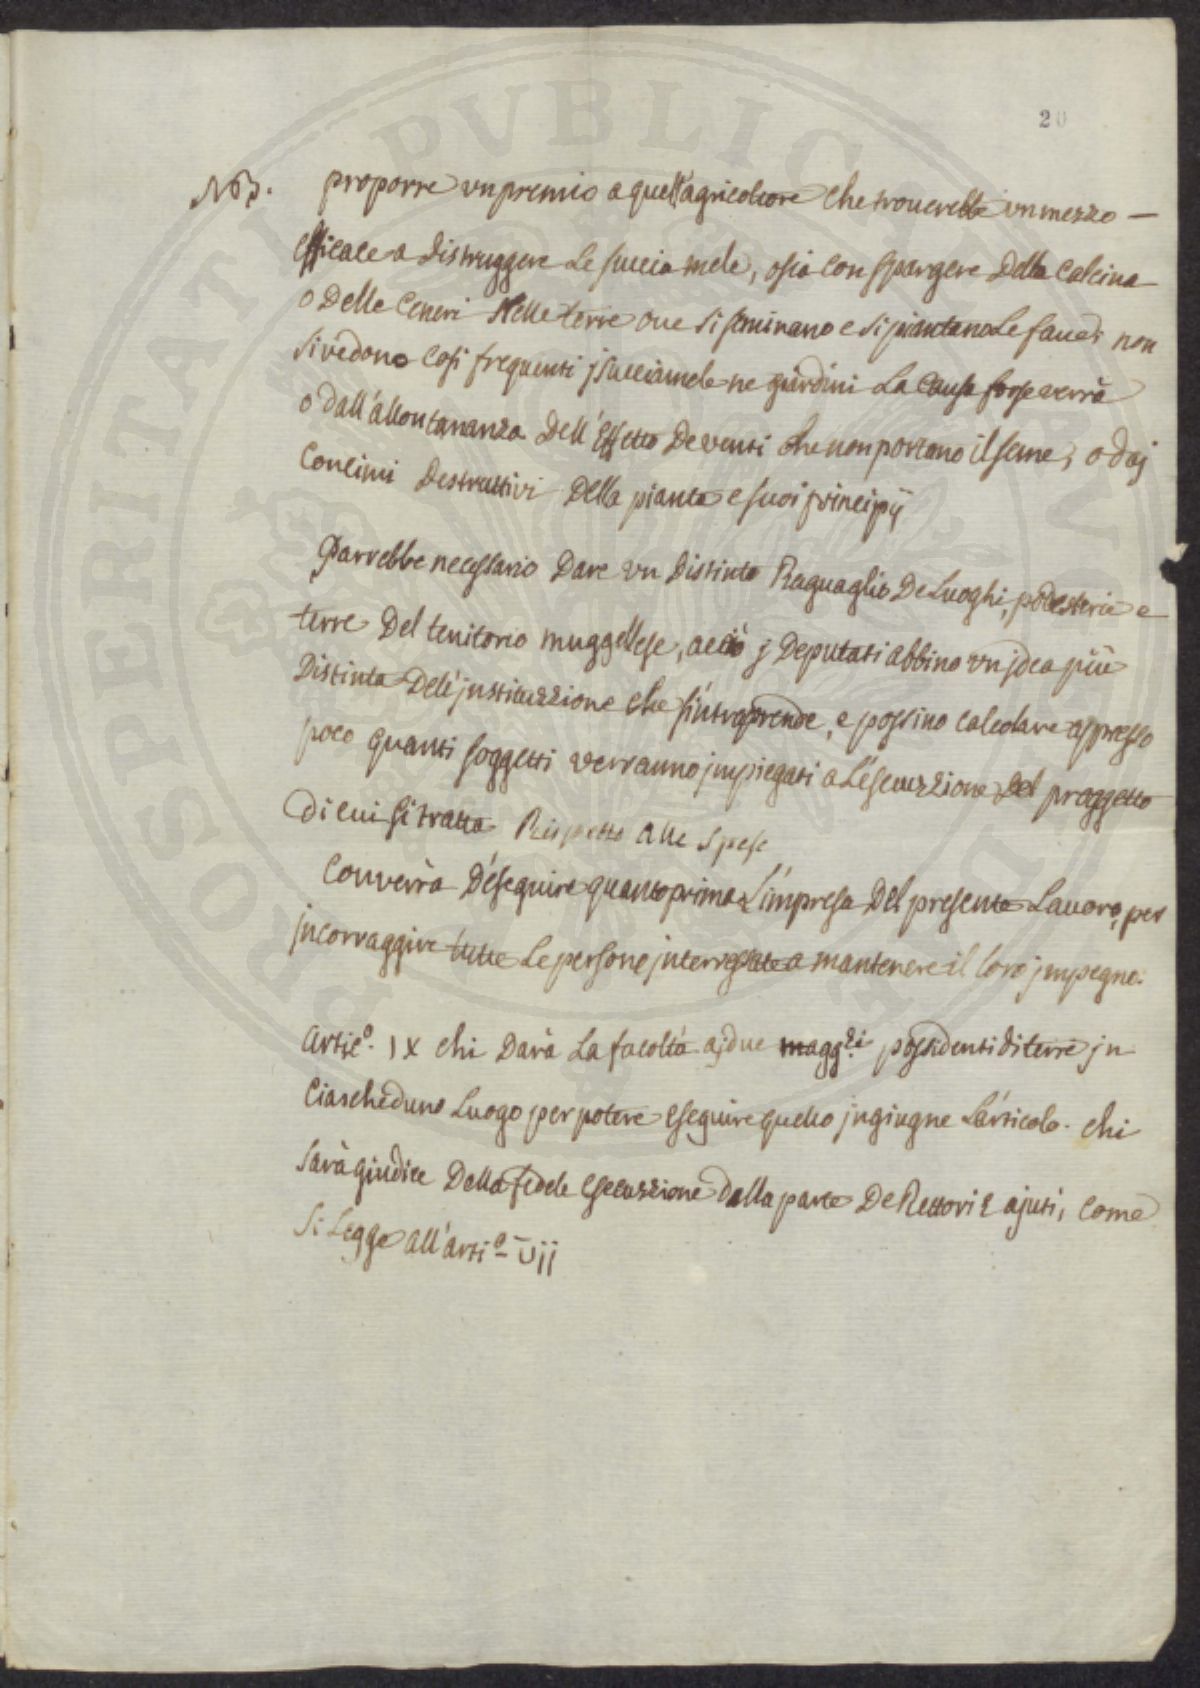 PROSPERITATI PVBLICAE AVGENDAE
20
NB. proporre vn premio a quell'agricoltore che trouerebbe vn mezzo —
efficace a distruggere Le succia mele, osia con spargere Della Calcina
o Delle Ceneri Nelle terre oue si seminano e si piantano Le faue; non
si vedono Cosi frequenti j succiamele ne giardini La Causa forse verrà
o dall'allontananza Dell'Effetto De venti che non portano il seme, o daj
Concimi Destruttivi Della pianta e suoi principij
Parrebbe necessario Dare vn Distinto Raguaglio De Luoghi, podesterie e
terre Del teritorio muggellese, acciò j Deputati abbino vn jdea più
Distinta Del'justituzzione che s'intraprende, e possino calcolare appresso
poco quanti soggetti verranno jmpiegati a L'esecuzzione Del proggetto
Di cui si tratta Rispetto alle spese
Converrà D'eseguire quanto prima L'impresa Del presente Lauoro, per
jncorraggire tutte Le persone jnterressate a mantenere il loro jmpegno.
Artic.º IX chi Darà La facoltà aj due magg.ri possidenti di terre jn
Ciascheduno Luogo per potere eseguire quello jngiugne L'articolo. chi
sarà giudice Della fedele esecuzzione dalla parte De Rettori e ajuti, come
si Legge all'arti.º Vjj